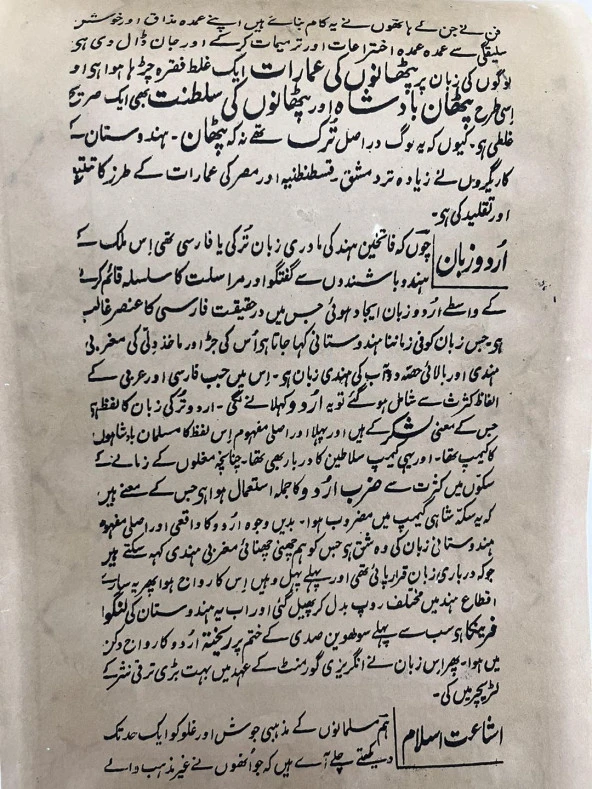 فن نے جن کے ہاتھوں نے یہ کام بنائے ہیں اپنے عمدہ مذاق اور خوش
سلیقگی سے عمدہ عمدہ اختراعات اور ترمیمات کرکے اور جان ڈال دی ہی
لوگوں کی زبان پر پٹھانوں کی عمارات ایک غلط فقرہ چڑہا ہوا ہی او
اِسی طرح پٹھان بادشاہ اور پٹھانوں کی سلطنت بھی ایک صریح
غلطی ہو۔ کیوں کہ یہ لوگ در اصل تُرک تھے نہ کہ پٹھان۔ ہندوستان کے
کاریگروں نے زیادہ تر دمشق، قسطنطنیہ اور مصر کی عمارات کے طرز کا تتبع
اور تقلید کی ہو۔
اُردو زبان
چوں کہ فاتحین ہند کی مادری زبان تُرکی یا فارسی تھی اِس ملک کے
ہندو باشندوں سے گفتگو اور مراسلت کا سلسلہ قائم کرنے
کے واسطے اردو زبان ایجاد ہوئی جس میں درحقیقت فارسی کا عنصر غالب
ہو۔ جس زبان کو فی زماننا ہندوستانی کہا جاتا ہو اُس کی جڑ اور ماخذ دِلّی کی مغربی
ہندی اور بالائی حصّہ دوآب کی ہندی زبان ہو۔ اِس میں جب فارسی اور عربی کے
الفاظ کثرت سے شامل ہو گئے تو یہ اردو کہلانے لگی۔ اردو تُرکی زبان کا لفظ ہو
جس کے معنی لشکر کے ہیں اور پہلا اور اصلی مفہوم اِس لفظ کا مسلمان بادشاہوں
کا کیمپ تھا۔ اور یہی کیمپ سلاطین کا دربار بھی تھا۔ چنانچہ مغلوں کے زمانے کے
سکوں میں کثرت سے ضرب اردو کا جملہ استعمال ہوا ہو جس کے معنے ہیں
کہ یہ سکّہ شاہی کیمپ میں مضروب ہوا۔ بدیں وجوہ اردو کا واقعی اور اصلی مفہوم
ہندوستانی زبان کی وہ شق ہو جس کو ہم چھنی چھنائی مغربی ہندی کہہ سکتے ہیں
جو کہ درباری زبان قرار پائی تھی اور پہلے پہل وہیں اِس کا رواج ہوا پھر یہ سارے
اقطاع ہند میں مختلف روپ بدل کر پھیل گئی اور اب یہ ہندوستان کی لنگوا
فرینکا ہو سب سے پہلے سولھویں صدی کے ختم پر ریختہ اردو کا رواج دکن
میں ہوا۔ پھر اِس زبان نے انگریزی گورمنٹ کے عہد میں بہت بڑی ترقی نثر کے
لٹریچر میں کی۔
اشاعت اسلام
ہم مسلمانوں کے مذہبی جوش اور غلو کو ایک حد تک
دیکھتے چلے آے ہیں کہ جو اُنھوں نے غیر مذہب والے